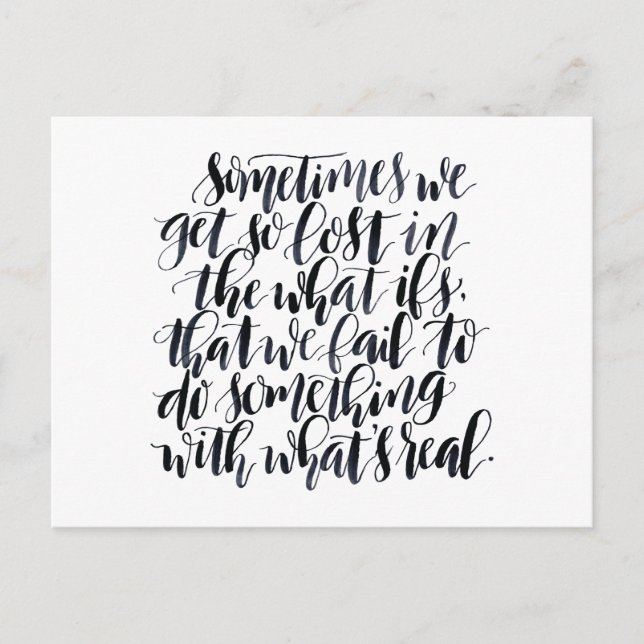 sometimes we
get so lost in
the what ifs,
that we fail to
do something
with what's real.